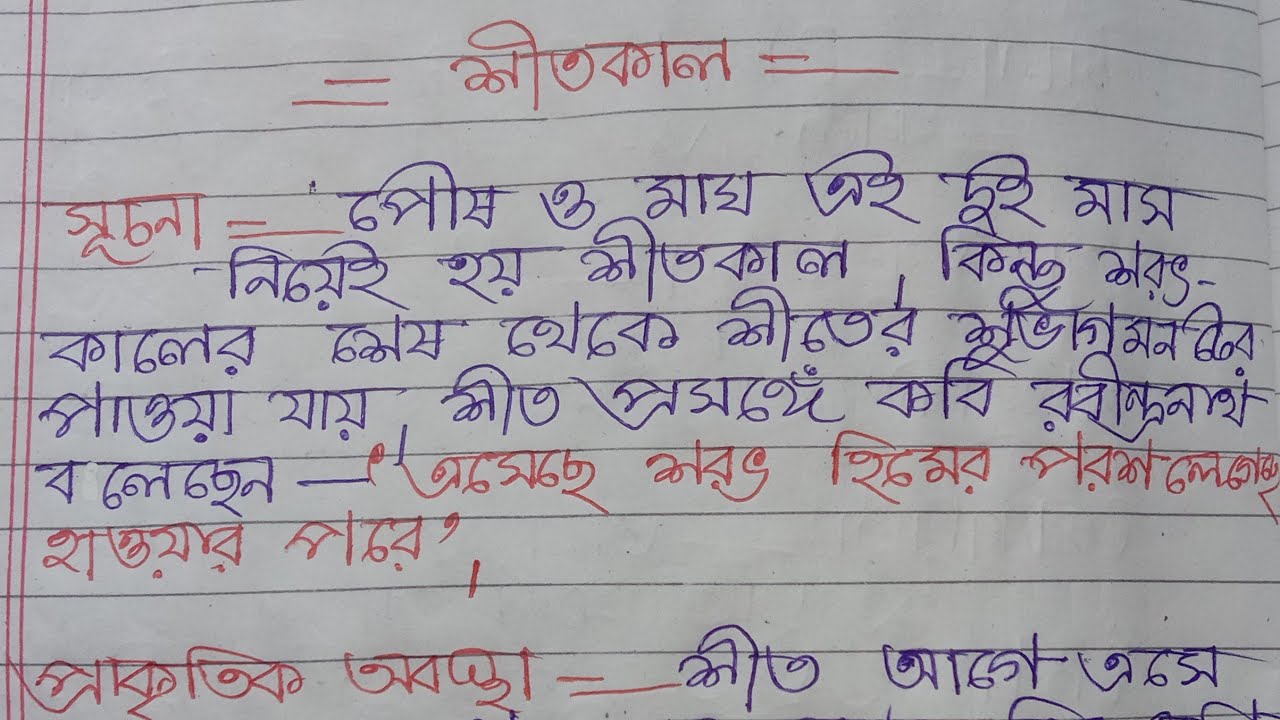 = শীতকাল =
সূচনা = পৌষ ও মাঘ এই দুই মাস
নিয়েই হয় শীতকাল, কিন্তু শরৎ-
কালের শেষ থেকে শীতের
পাওয়া যায়, শীত প্রসঙ্গে কবি রবীন্দ্রনাথ
বলেছেন — 'এসেছে শরৎ হিমের পরশ লেগেছে
হাওয়ার পরে'।
প্রাকৃতিক অবস্থা = শীত আগে এসে